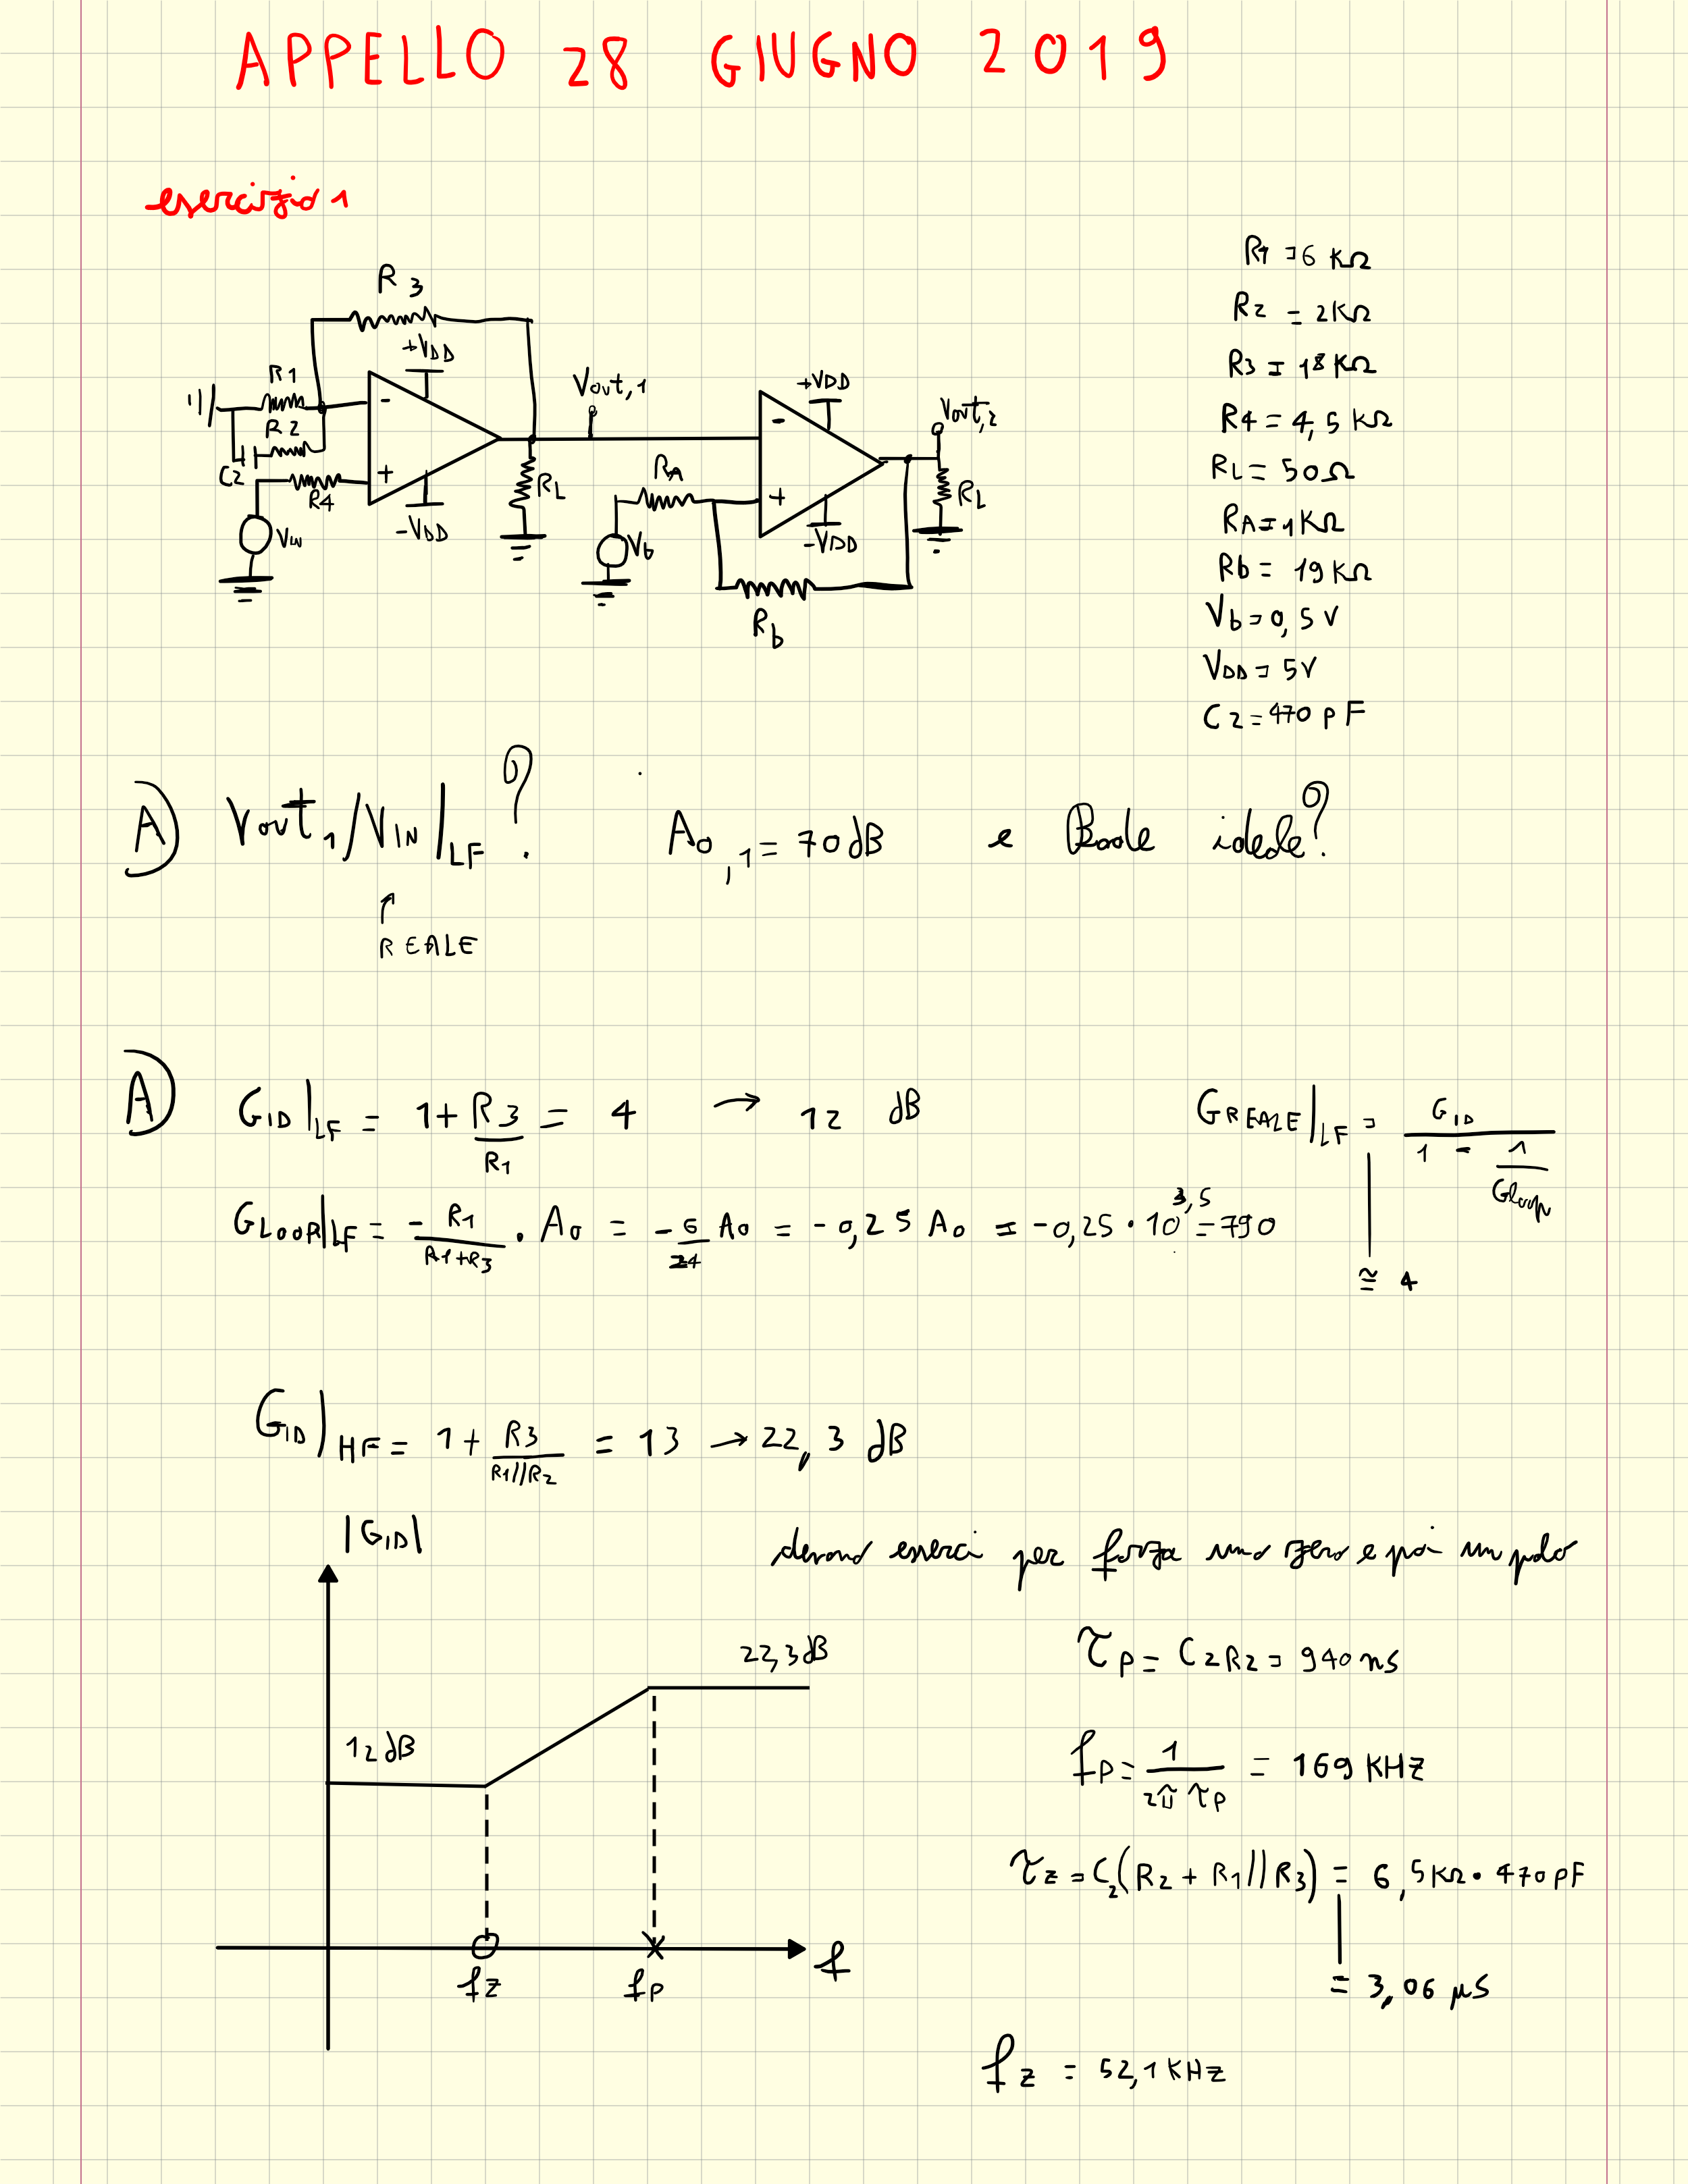 APPELLO 28 GIUGNO 2019
esercizio 1
R3
+VDD
R1
R2
C2
R4
Vin
-
+
-VDD
Vout,1
RL
RA
Vb
+VDD
-
+
-VDD
Rb
Vout,2
RL
R1 = 6 KΩ
R2 = 2KΩ
R3 = 18 KΩ
R4 = 4,5 KΩ
RL = 50Ω
RA = 1KΩ
Rb = 19KΩ
Vb = 0,5 V
VDD = 5V
C2 = 470 pF
A) Vout,1/VIN|LF ? A0,1 = 70 dB e Bode ideale?
↑
REALE
A) GID|LF = 1 + R3/R1 = 4 → 12 dB
GREALE|LF = GID/(1 - 1/Gloop)
≅ 4
GLOOP|LF = - R1/(R1+R3) · A0 = - 6/24 A0 = -0,25 A0 = -0,25 · 10^3,5 = 790
GID|HF = 1 + R3/(R1//R2) = 13 → 22,3 dB
|GID|
devono esserci per forza uno zero e poi un polo
22,3dB
12 dB
fz
fp
f
τp = C2R2 = 940 ns
fp = 1/(2π τp) = 169 KHz
τz = C2(R2 + R1//R3) = 6,5KΩ · 470pF
= 3,06 μs
fz = 52,1 KHz